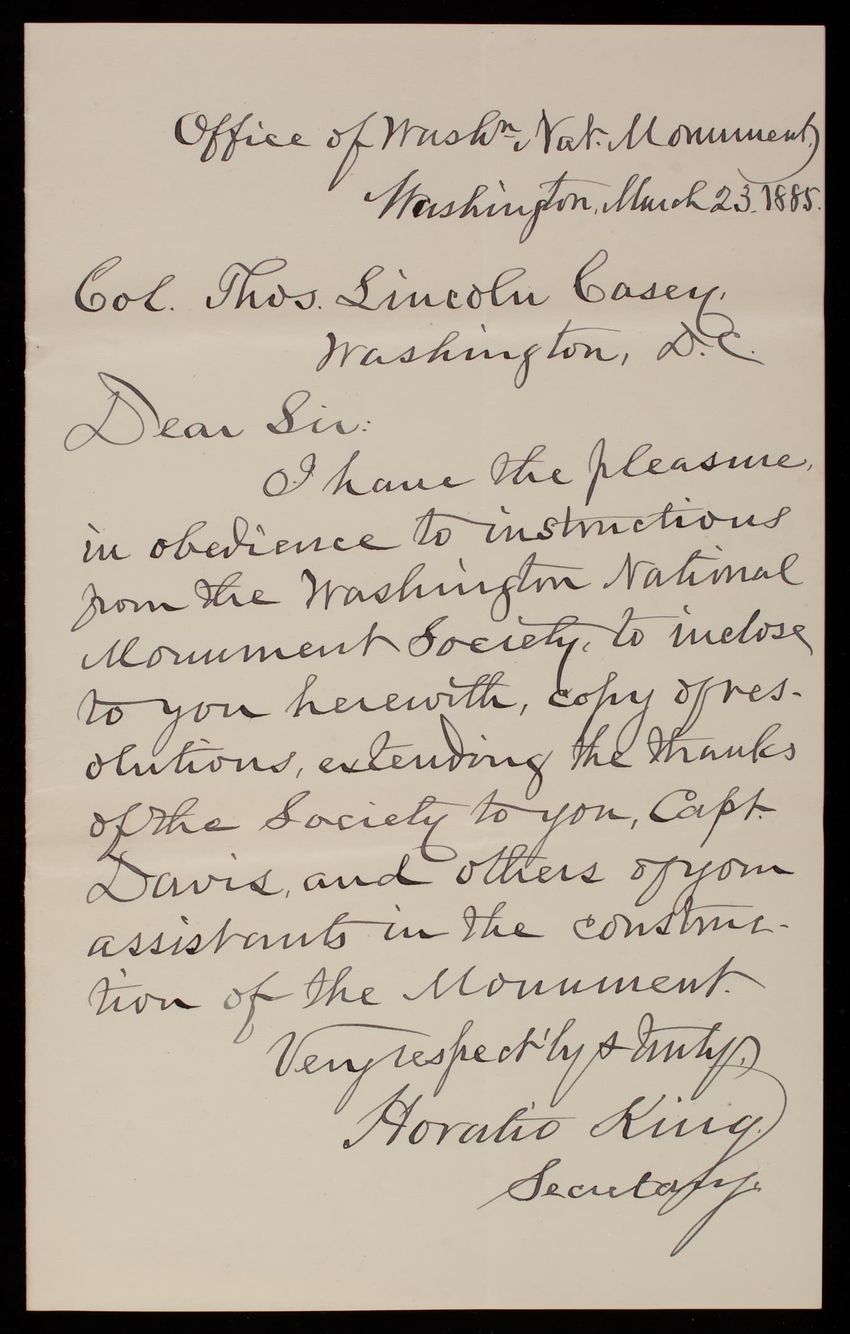 Office of Washn. Nat. Monument,
Washington, March 23. 1885.
Col. Thos. Lincoln Casey,
Washington, D.C.
Dear Sir:
I have the pleasure,
in obedience to instructions
from the Washington National
Monument Society, to inclose
to you herewith, copy of res-
olutions, extending the thanks
of the Society to you, Capt.
Davis, and others of your
assistants in the construc-
tion of the Monument.
Very respect'ly & truly,
Horatio King
Secretary.